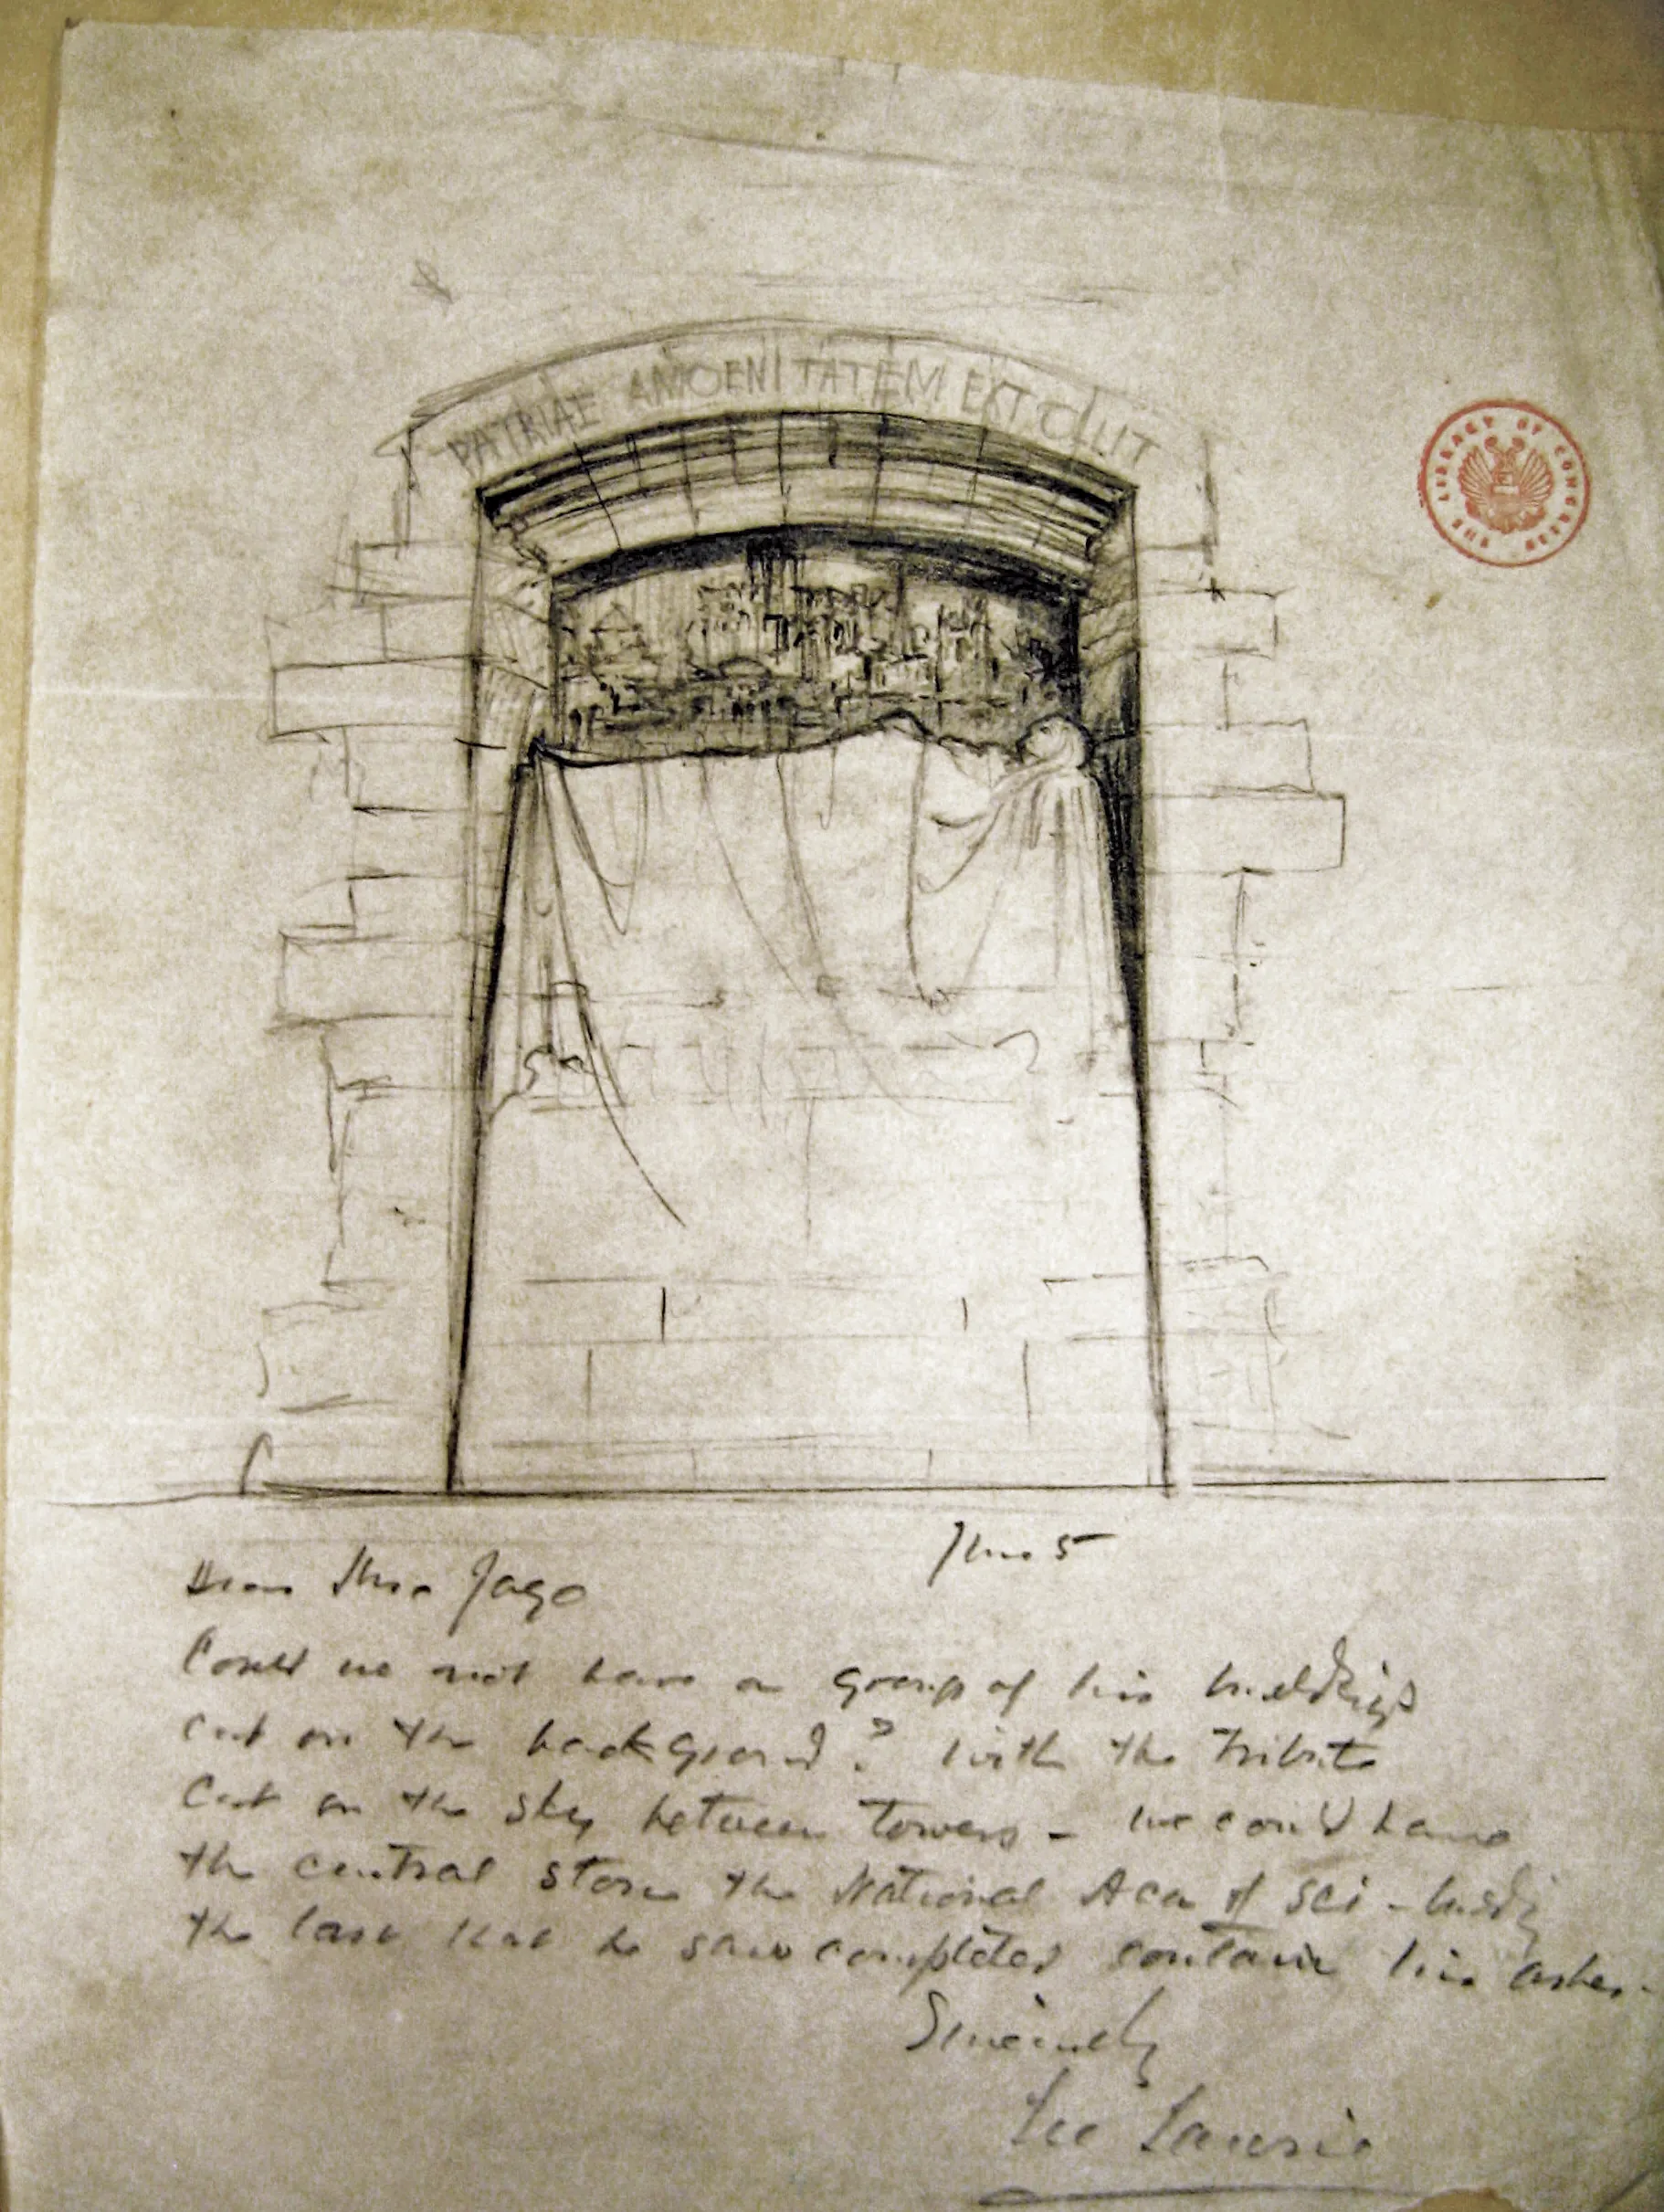 PATRIAE AMOENITATEM EXTOLLIT
THE LIBRARY OF CONGRESS
5
Dear Jago
Could we not have a group of his buildings
cut on the background? with the tribute
cut on the sky between towers - we could have
the central stone the National Aca of Sci -
the last that he saw completed contain his ashes.
Sincerely
Lee Lawrie